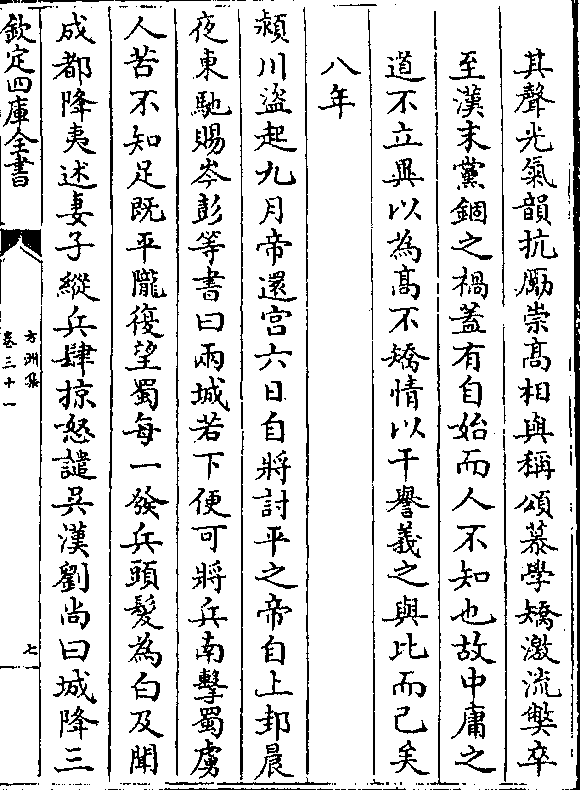 其聲光氣韻抗厲崇髙相與稱頌慕學矯激流弊卒
至漢末黨錮之禍蓋有自始而人不知也故中庸之
道不立異以為髙不矯情以干譽義之與比而已矣
八年
潁川盜起九月帝還宫六日自將討平之帝自上邽晨
夜東馳賜岑彭等書曰兩城若下便可將兵南擊蜀虜
人苦不知足既平隴復望蜀每一發兵頭髮為白及聞
成都降夷述妻子縱兵肆掠怒譴吳漢劉尚曰城降三
欽定四庫全書
方洲集
卷三十一
七